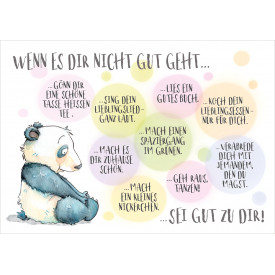 WENN ES DIR NICHT GUT GEHT...
...GÖNN DIR
EINE SCHÖNE
TASSE HEISSEN
TEE.
...SING DEIN
LIEBLINGSLIED-
GANZ LAUT.
...LIES EIN
GUTES BUCH.
...KOCH DEIN
LIEBLINGSESSEN-
NUR FÜR DICH.
...MACH ES
DIR ZUHAUSE
SCHÖN.
...MACH EINEN
SPAZIERGANG
IM GRÜNEN.
...VERABREDE
DICH MIT
JEMANDEM,
DEN DU
MAGST.
...MACH
EIN KLEINES
NICKERCHEN.
...GEH RAUS,
TANZEN!
...SEI GUT ZU DIR!